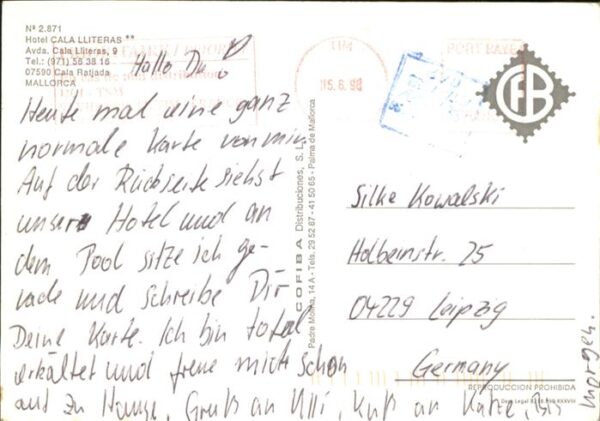 Nº 2.871
Hotel CALA LLITERAS **
Avda. Cala Lliteras, 9
Tel.: (971) 56 38 16
07590 Cala Ratjada
MALLORCA
Hallo Du!
Heute mal eine ganz
normale Karte von mir.
Auf der Rückseite siehst
unser Hotel und an
dem Pool sitze ich ge-
rade und schreibe Dir
Deine Karte. Ich bin total
erkältet und freue mich schon
auf zu Hause. Gruß an Ulli, Kuß an Katze, Bis
morgen.
COFIBA Distribuciones, S. L.
Padre Molina, 14 A - Tels. 29 52 87 - 41 50 65 - Palma de Mallorca
TIM
05.6.98
CFB
Silke Kowalski
Holbeinstr. 25
04229 Leipzig
Germany
REPRODUCCION PROHIBIDA